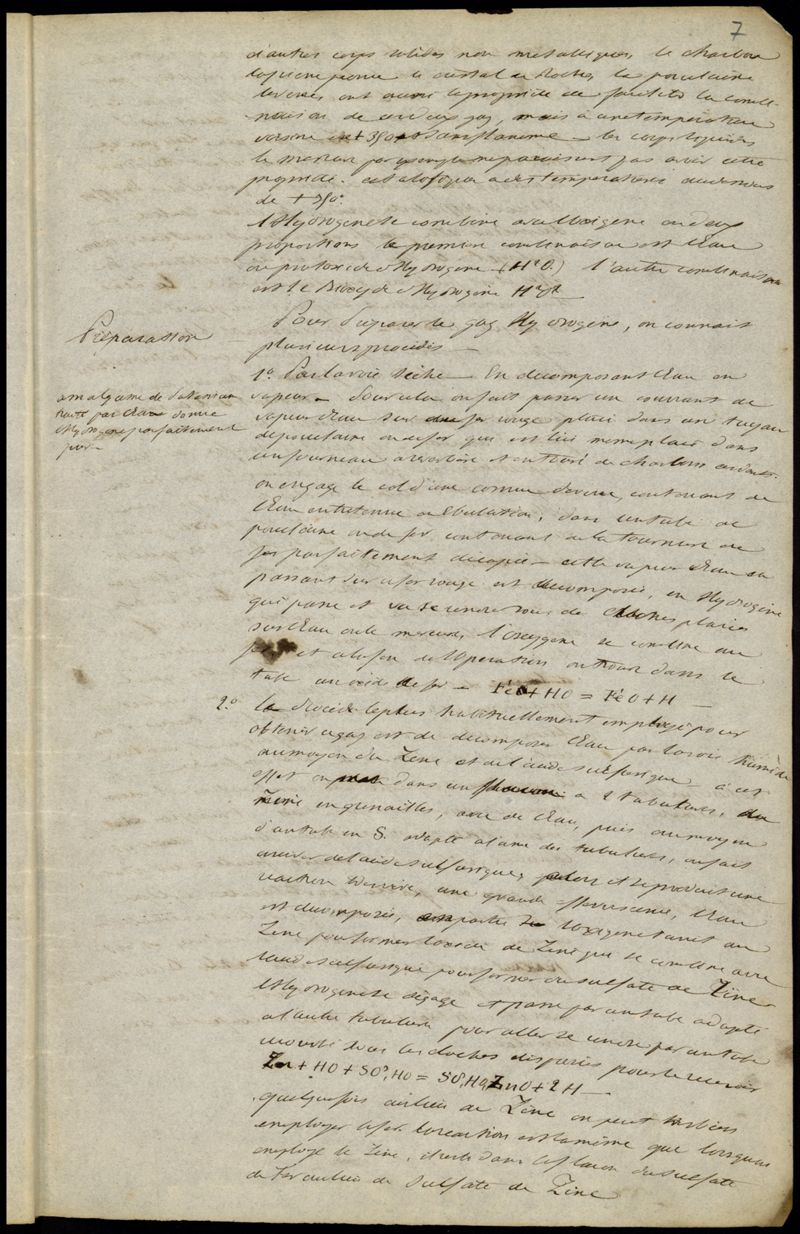 7
d'autres corps solides non métalliques, le charbon
la pierre ponce le cristal de Roche, la porcelaine
le verre, ont aussi la propriété de faciliter la combi-
naison de ces deux gaz, mais à une température
voisine de +350° sans flamme — les corps liquides
le mercure par exemple ne paraissent pas avoir cette
propriété. à des températures au dessous
de +350°.
l'Hydrogène se combine avec l'Oxigène en deux
proportions la première combinaison est l'Eau
ou protoxide d'Hydrogène (H²O.) l'autre combinaison
est le Bioxyde d'Hydrogène
Préparation
Pour préparer le gaz Hydrogène, on connait
plusieurs procédés —
1° Par la voie sèche — En décomposant l'Eau en
amalgame de Potassium
traité par l'Eau donne
Hydrogène parfaitement
pur —
vapeur — Pour cela on fait passer un courant de
vapeur d'Eau sur du fer rouge placé dans un tuyau
de porcelaine ou de fer qui est lui même placé dans
un fourneau à réverbère et entouré de charbons ardents.
on engage le col d'une cornue de verre, contenant de
l'Eau entretenue en Ebulition, dans un tube de
porcelaine ou de fer, contenant de la tournure de
fer parfaitement décapée — cette vapeur d'Eau en
passant sur ce fer rouge est décomposée, en Hydrogène
qui passe et va se rendre sous de cloches placées
sur l'Eau ou le mercure, l'oxygène se combine au
fer et à la fin de l'Opération on trouve dans le
tube un oxide de fer — Fe + HO = FeO + H —
2° Le Procédé le plus habituellement employé pour
obtenir ce gaz est de décomposer l'Eau par la voie humide
au moyen du Zinc et de l'acide sulfurique — à cet
effet on dans un flacon à 2 tubulures, du
zinc en grenailles, avec de l'Eau, puis au moyen
d'un tube en S. adapté à l'une des tubulures, on fait
arriver de l'acide sulfurique, et il se produit une
réaction très vive, une grande effervescence, l'Eau
est décomposée, l'oxigène s'unit au
Zinc pour former l'oxide de Zinc qui se combine avec
l'acide sulfurique pour former du sulfate de Zinc
l'Hydrogène se dégage et passe par un tube adapté
à l'autre tubulure pour aller se rendre par un tube
recourbé sous les cloches disposées pour le recevoir
Zn + HO + SO³,HO = SO³,HO,ZnO + 2H —
quelquefois au lieu de Zinc on peut très bien
employer le fer. la réaction est la même que lorsqu'on
employe le Zinc, il reste dans le flacon du sulfate
de Fer au lieu de Sulfate de Zinc